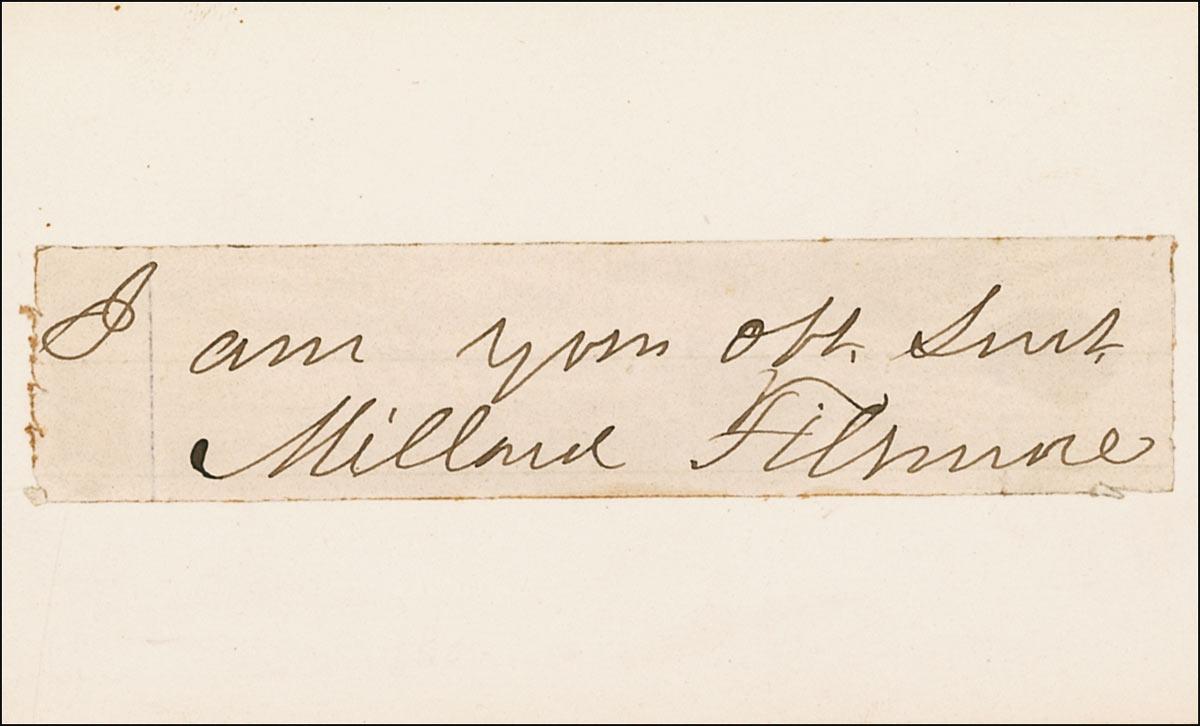 I am your obt. Servt.
Millard Fillmore